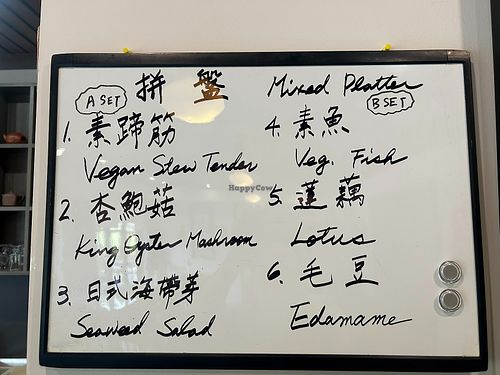 拼盤 Mixed Platter
A SET
1. 素蹄筋
Vegan Stew Tender
2. 杏鮑菇
King Oyster Mashroom
3. 日式海帶芽
Seaweed Salad
B SET
4. 素魚
Veg. Fish
5. 蓮藕
Lotus
6. 毛豆
Edamame
HappyCow